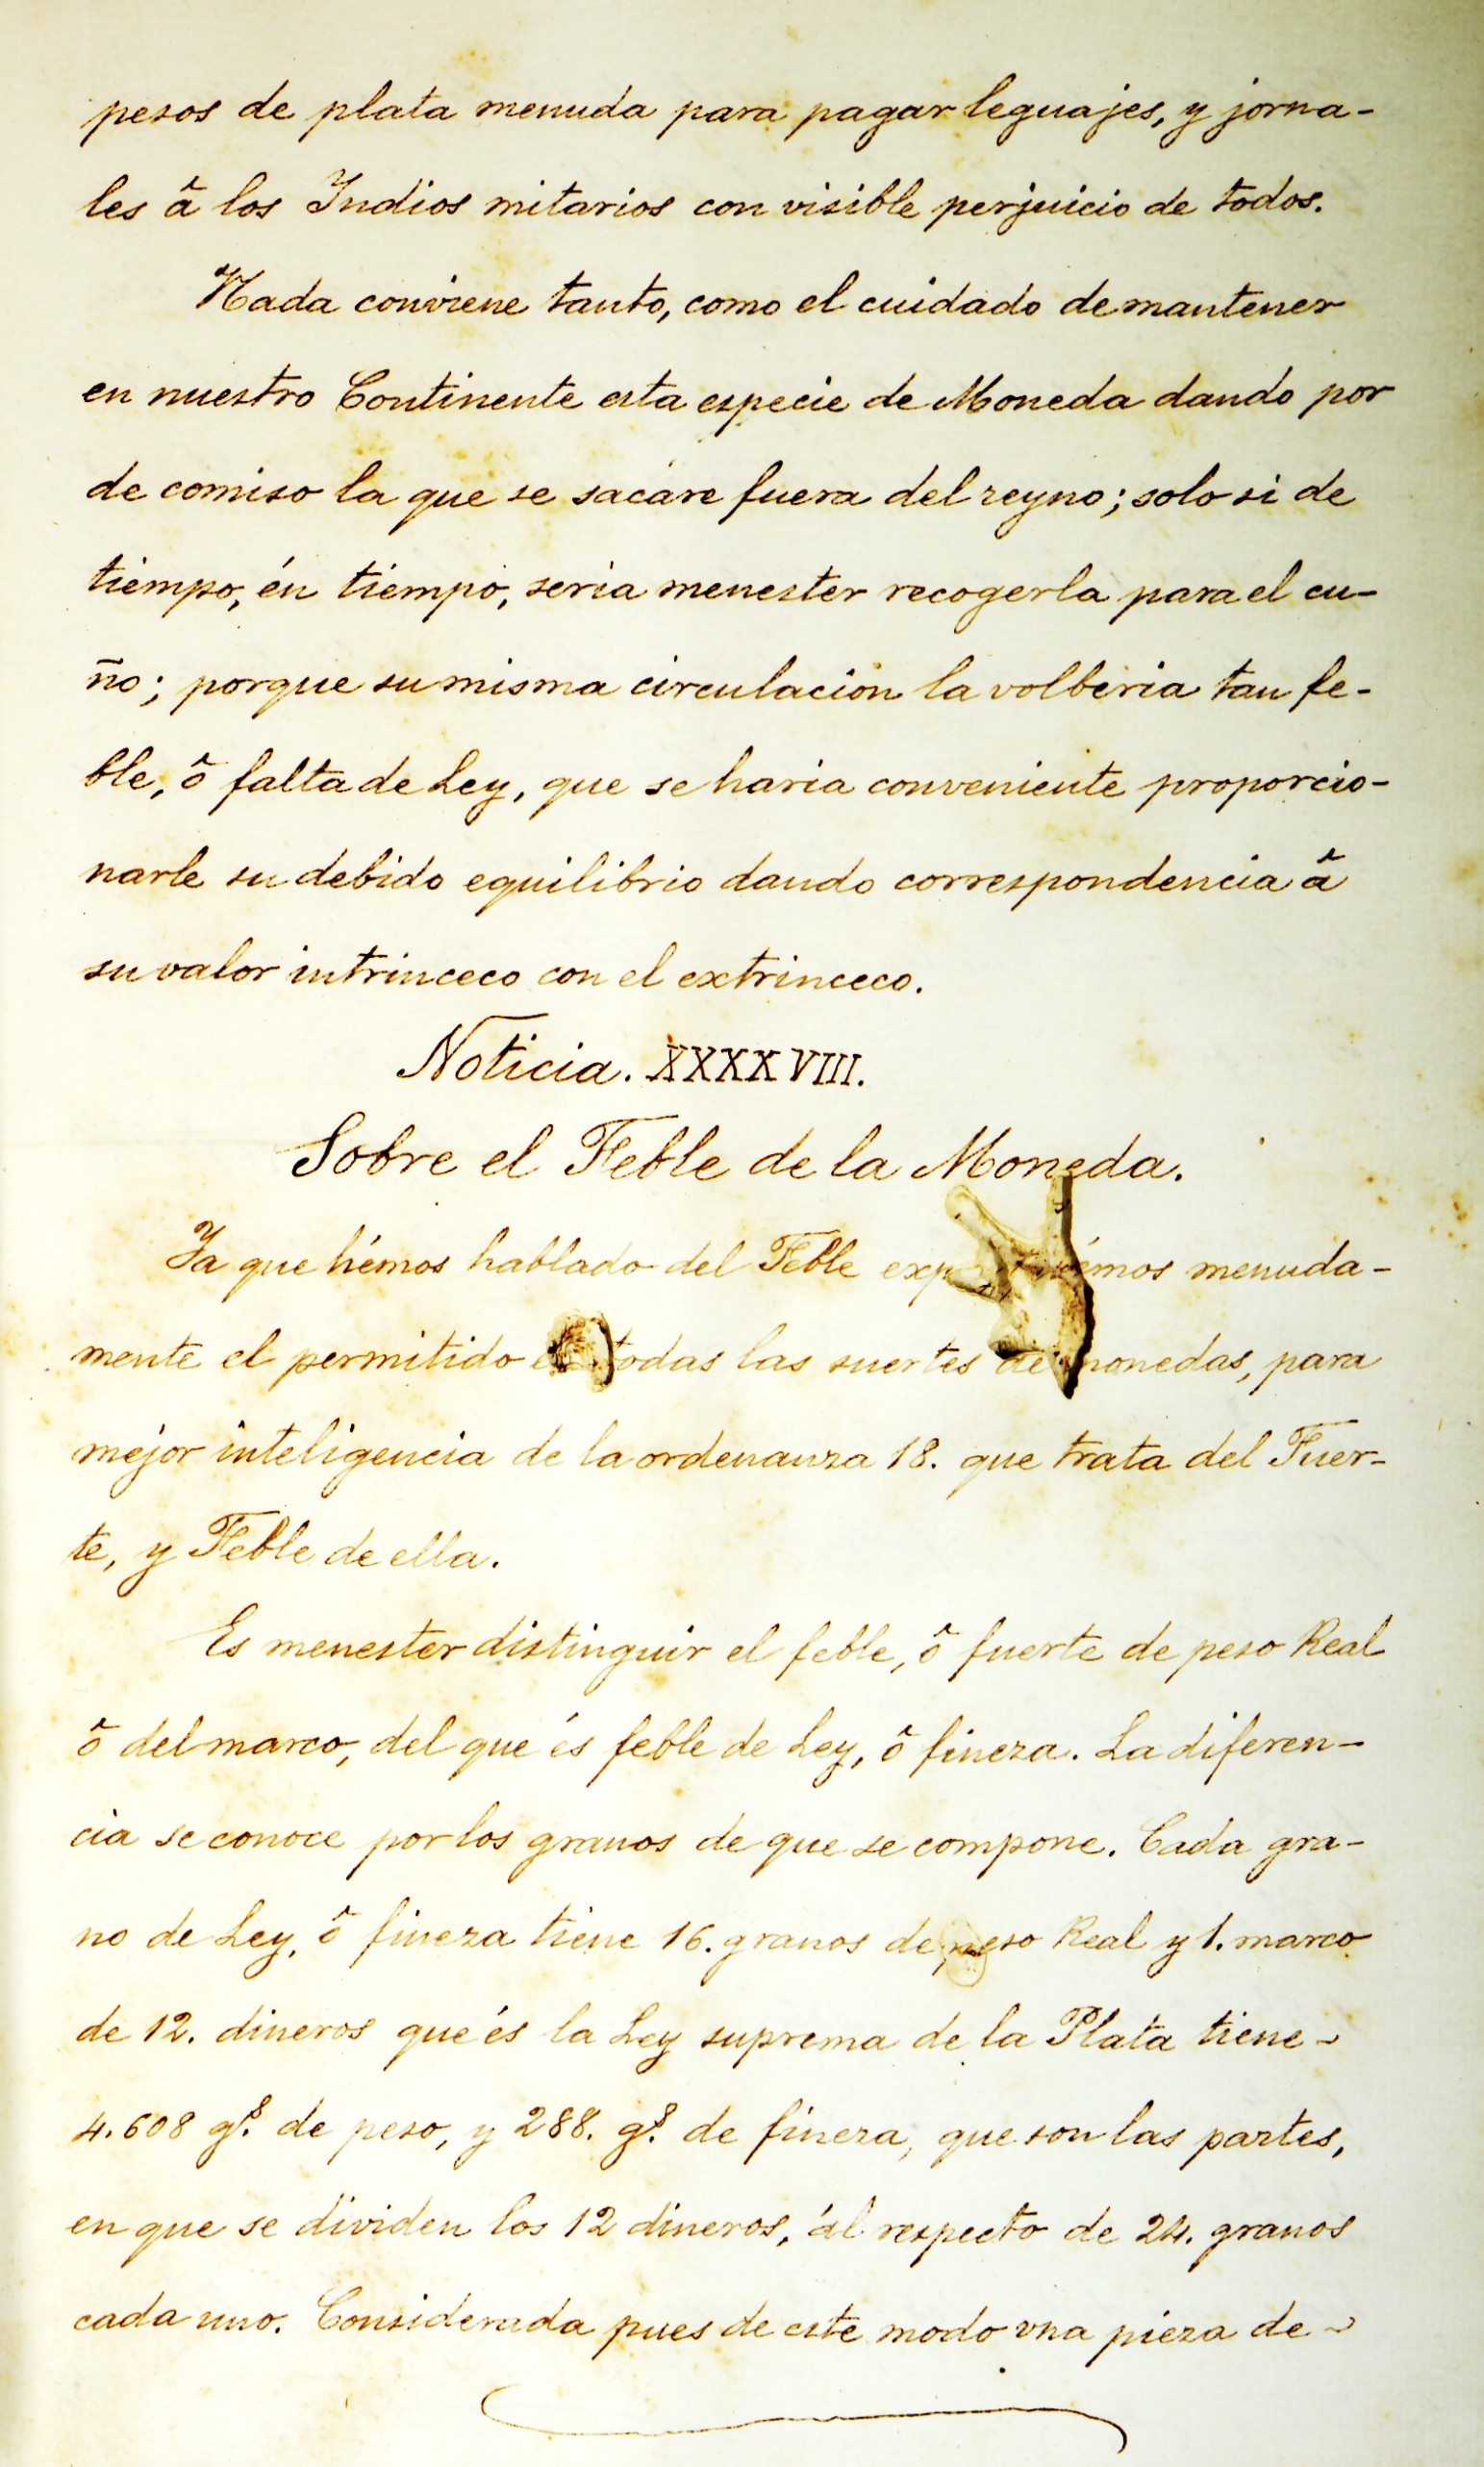 pesos de plata menuda para pagar leguajes, y jorna-
les â los Indios mitarios con visible perjuicio de todos.
Nada conviene tanto, como el cuidado de mantener
en nuestro Continente esta especie de Moneda dando por
de comiso la que se sacáre fuera del reyno; solo si de
tiempo, én tiempo, seria menester recogerla para el cu-
ño; porque su misma circulacion la volberia tan fe-
ble, ô falta de Ley, que se haria conveniente proporcio-
narle su debido equilibrio dando correspondencia â
su valor intrinceco con el extrinceco.
Noticia. XXXXVIII.
Sobre el Feble de la Moneda.
Ya que hémos hablado del Feble menuda-
mente el permitido todas las suertes de monedas, para
mejor inteligencia de la ordenanza 18. que trata del Fuer-
te, y Feble de ella.
Es menester distinguir el feble, ô fuerte de peso Real
ô del marco, del que és feble de Ley, ô fineza. La diferen-
cia se conoce por los granos de que se compone. Cada gra-
no de Ley, ô fineza tiene 16. granos de peso Real y 1. marco
de 12. dineros que és la Ley suprema de la Plata tiene
4.608 g.s de peso, y 288. g.s de fineza, que son las partes,
en que se dividen los 12 dineros, ál respecto de 24. granos
cada uno. Considerada pues de este modo vna pieza de